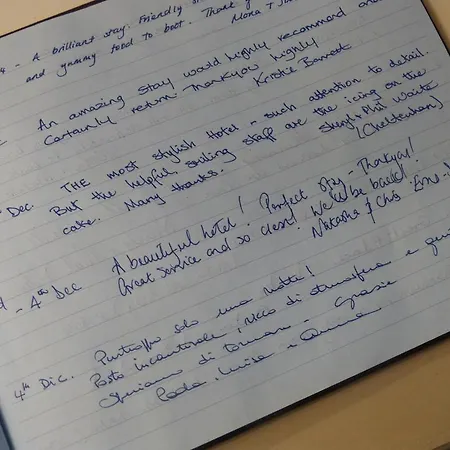 4 - A brilliant stay. Friendly
and yummy food to boot. Thank
Mona +
An amazing stay would highly recommend and
Certainly return. Thankyou highly
Kristie Bennett
Dec. THE most stylish Hotel - such attention to detail.
But the helpful, smiling staff are the icing on the
cake. Many thanks. Sheryl + Phil Waite
(Cheltenham)
- 4th Dec A beautiful hotel! Perfect stay - Thankyou!
Great service and so clean! We'll be back!
Natasha & Chris
4th Dic. Purtroppo solo una notte!
Posto incantevole, ricco di atmosfera e
Speriamo di tornare. Grazie
Paola, Luisa e